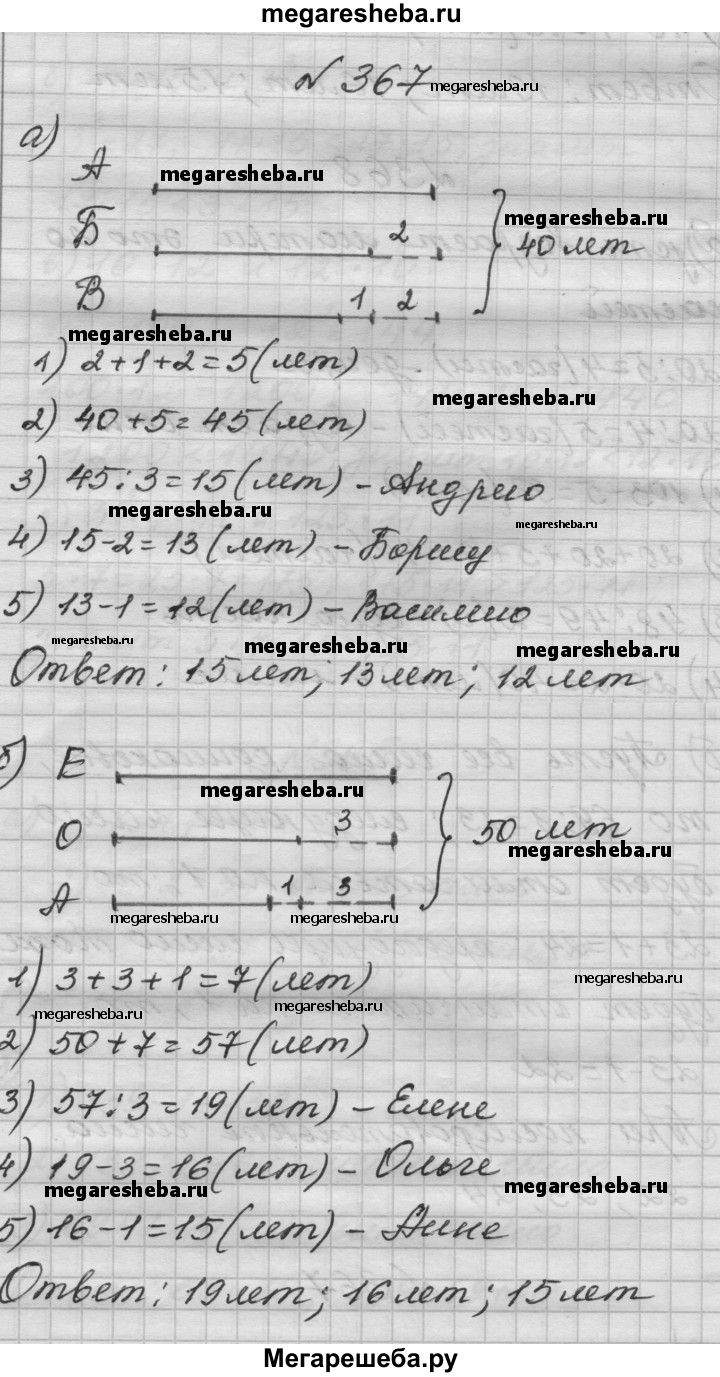 megaresheba.ru
№ 367 megaresheba.ru
а)
А megaresheba.ru
Б 2 megaresheba.ru
40 лет
В 1 2
megaresheba.ru
1) 2+1+2=5(лет)
megaresheba.ru
2) 40+5=45(лет)
3) 45:3=15(лет) - Андрею
megaresheba.ru
megaresheba.ru
4) 15-2=13(лет) - Борису
5) 13-1=12(лет) - Василию
megaresheba.ru megaresheba.ru megaresheba.ru
Ответ: 15лет; 13лет; 12лет
б) Е
megaresheba.ru
О 3 50 лет
megaresheba.ru
А 1 3
megaresheba.ru megaresheba.ru
1) 3+3+1=7(лет) megaresheba.ru
megaresheba.ru megaresheba.ru
2) 50+7=57(лет)
3) 57:3=19(лет) - Елене
4) 19-3=16(лет) - Ольге
megaresheba.ru megaresheba.ru
5) 16-1=15(лет) - Анне
Ответ: 19лет; 16лет; 15лет
Мегарешеба.ру